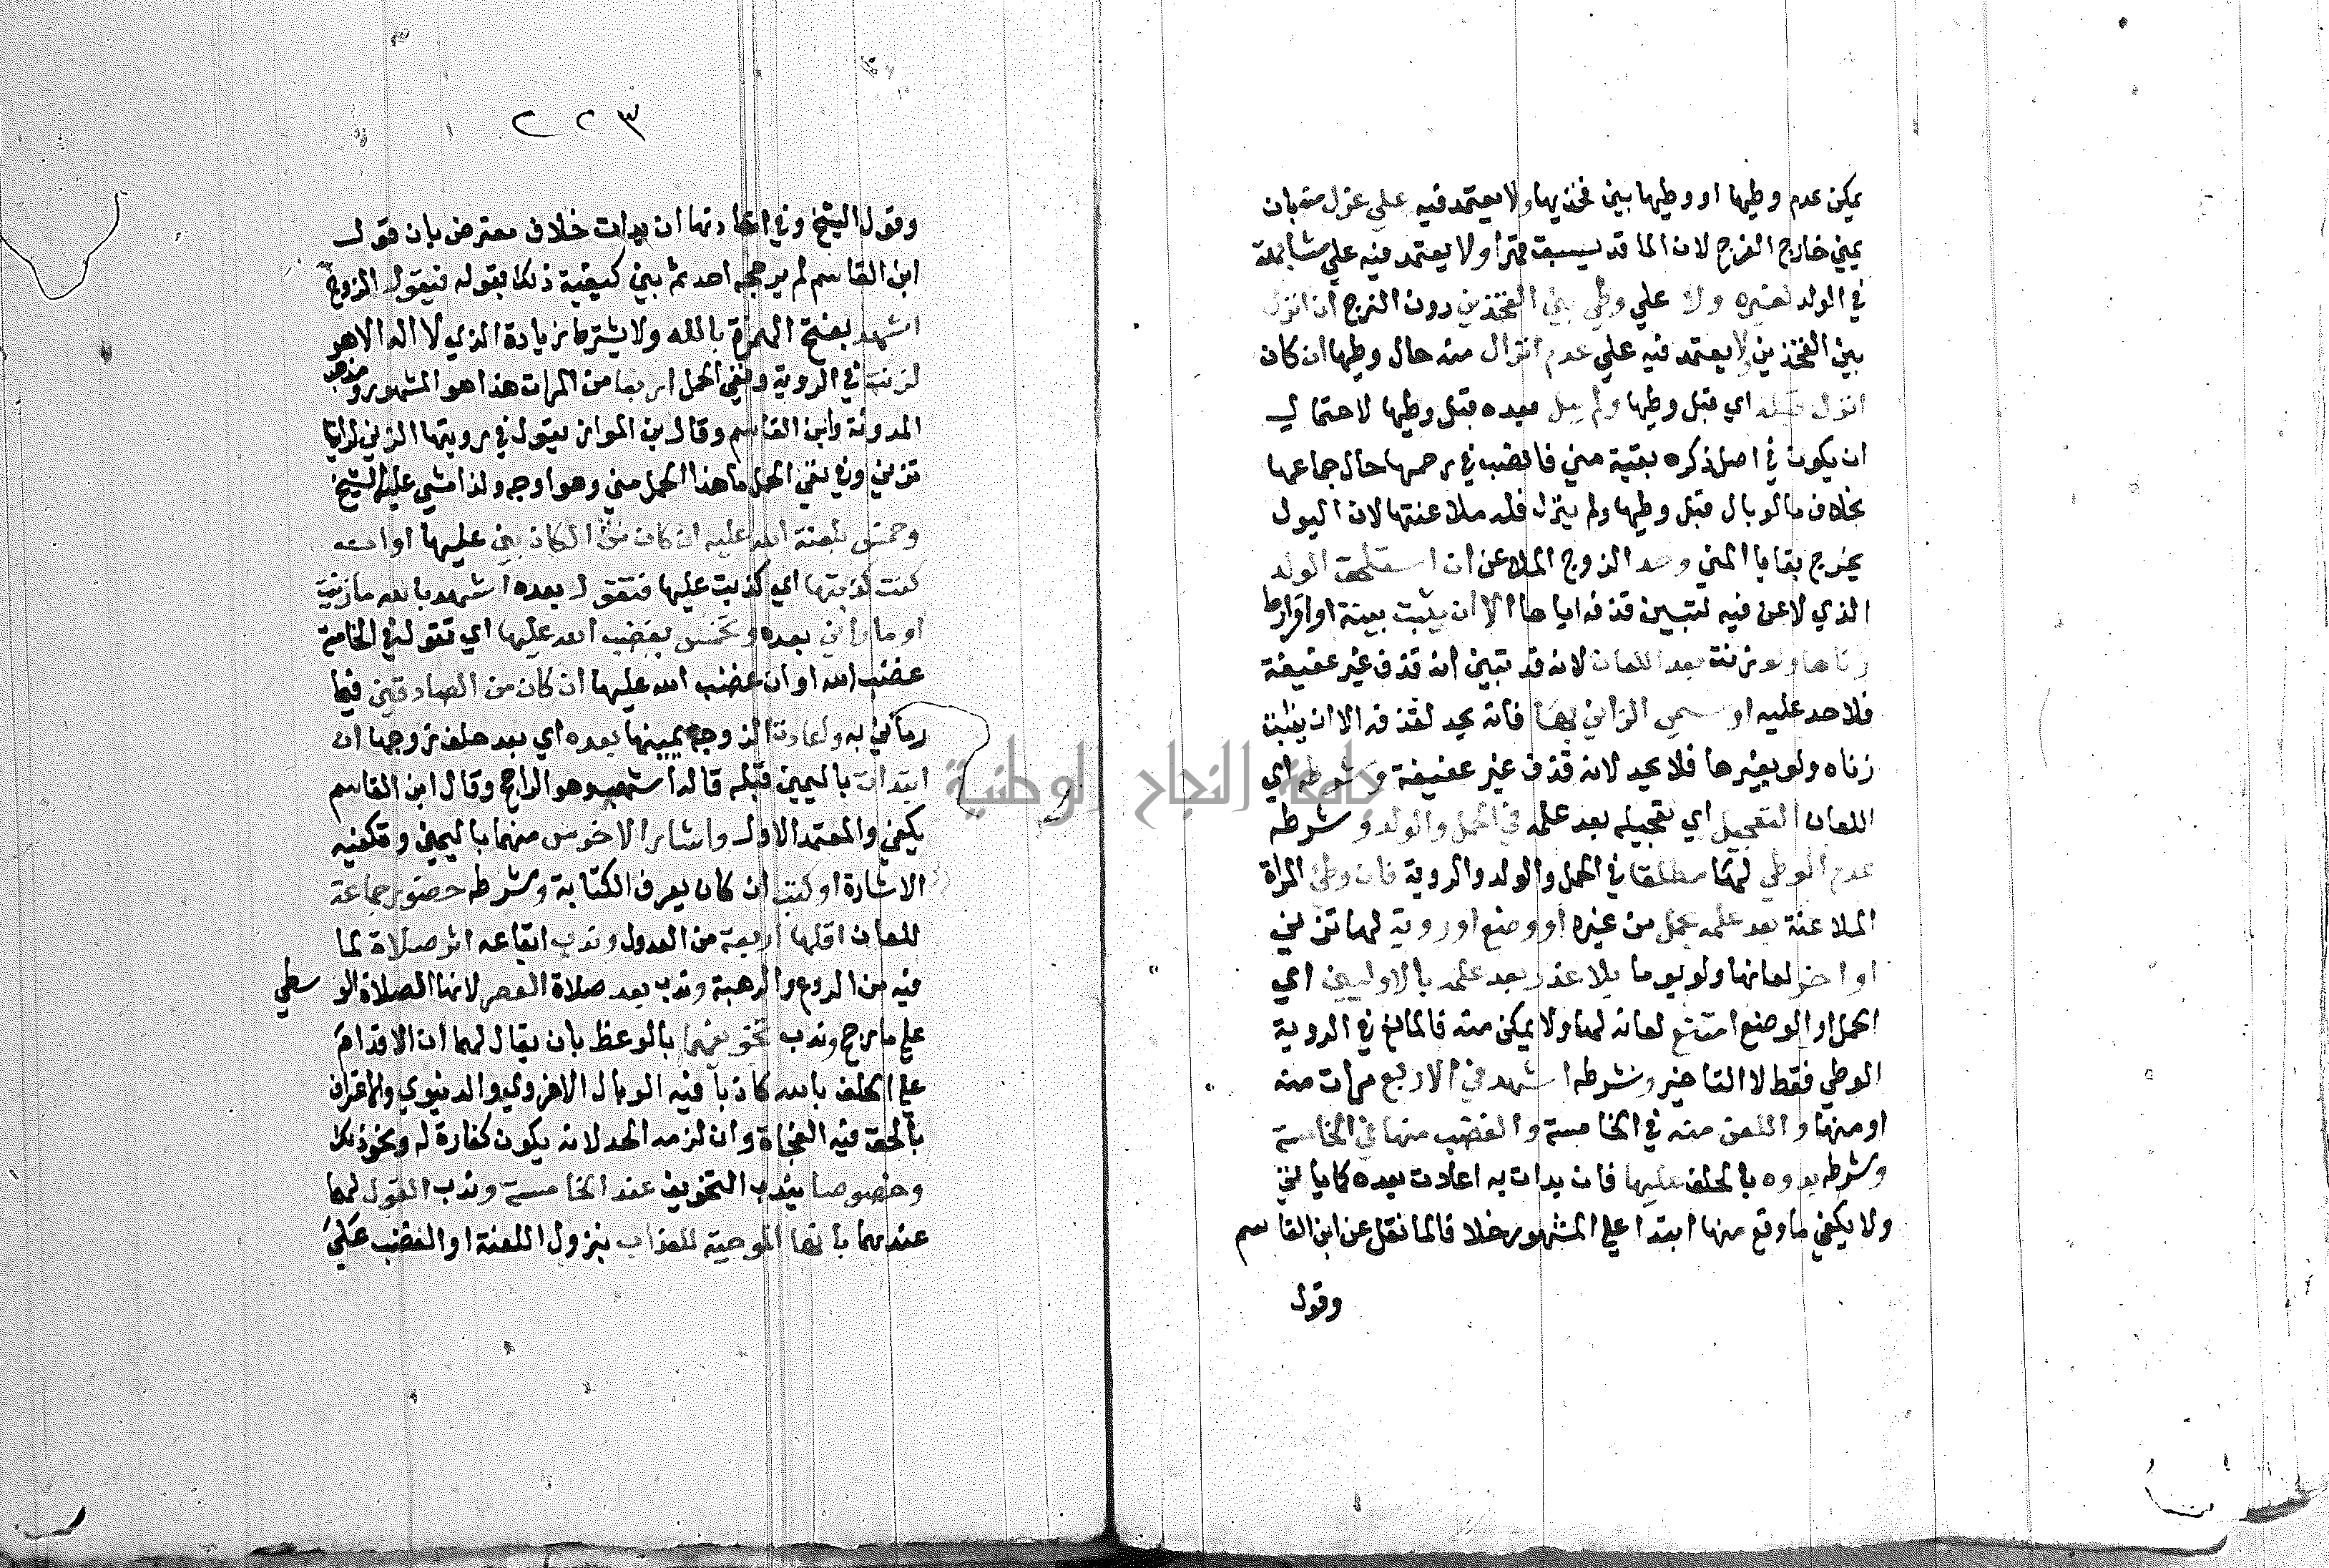 يمكن عدم وطيها او وطيها بين فخذيها ولا يعتمد فيه علي عزل منه بان
يمني خارج الفرج لان الما قد يسبقه قهرا ولا يعتمد فيه علي مشابهة
في الولد لغيره ولا علي وطي بين الفخذين دون الفرج ان انزل
بين الفخذين ولا يعتمد فيه علي عدم انزال منه حال وطيها ان كان
انزل قبله اي قبل وطيها ولم يبل بعده قبل وطيها لاحتمال
ان يكون في اصل ذكره بقية مني فانصب في رحمها حال جماعها
بخلاف ما لو بال قبل وطيها ولم ينزل فله ملاعنتها لان البول
يخرج بقايا المني وحد الزوج الملاعن ان استلحق الولد
الذي لاعن فيه لتبين قذفه اياها الا ان يثبت ببينة او اقرارها
زناها ولو بزنة بعد اللعان لانه قد تبين انه قذف غير عفيفة
فلا حد عليه او سمي الزاني بها فانه يحد لقذفه الا ان يثبت
زناه ولو بغيرها فلا يحد لانه قذف غير عفيفة وشرطه اي
اللعان التعجيل اي تعجيله بعد علمه في الحمل والولد وشرطه
عدم الوطي لهما مطلقا في الحمل والولد والروية فان وطي المراة
الملاعنة بعد علمه بحمل من غيره او وضع او روية لها تزني
او اخر لعانها ولو يوما بلا عذر بعد علمه بالاوليين اي
الحمل او الوضع امتنع لعانه لها ولا يمكن منه فالمانع في الروية
الوطي فقط لا التاخير وشرطه اشهد في الاربع مرات منه
او منها واللعن منه في الخامسة والغضب منها في الخامسة
وشرطه بدوه بالحلف عليها فان بدات به اعادت بعده كما ياتي
ولا يكفي ما وقع منها ابتدا علي المشهور خلافا لما نقل عن ابن القاسم
وقول
٢٢٣
وقول الشيخ وفي اعادتها ان بدات خلاف معترض بان قول
ابن القاسم لم يرجحه احد ثم بين كيفية ذلك بقوله فيقول الزوج
اشهد بفتح الهمزة بالله ولا يشترط زيادة الذي لا اله الا هو
لزنت في الروية ونفي الحمل اربعا من المرات هذا هو المشهور ومذهب
المدونة وابن القاسم وقال بن المواز يقول في رويتها الزني لرايتها
تزني وفي نفي الحمل ما هذا الحمل مني وهو اوجه ولذا مشي عليه الشيخ
وخمس بلعنة الله عليه ان كان من الكاذبين عليها او ان
كنت كذبتها اي كذبت عليها فتقول بعده اشهد بالله ما زنيت
او ما راني بعده وتخمس بغضب الله عليها اي تقول في الخامسة
غضب الله او ان غضب الله عليها ان كان من الصادقين فيما
رماني به واعادت الزوجة يمينها بعده اي بعد حلف زوجها ان
ابتدات باليمين قبله قاله اشهب وهو الراجح وقال ابن القاسم
يكفي والمعتمد الاول واشار الاخرس منهما باليمين وتكفيه
الاشارة او كتب ان كان يعرف الكتابة وشرطه حضور جماعة
للعان اقلها اربعة من العدول وندب ايقاعه اثر صلاة لما
فيه من الروع والرهبة وندب بعد صلاة العصر لانها الصلاة الوسطي
علي ما رجح وندب تخويفهما بالوعظ بان يقال لهما ان الاقدام
علي الحلف بالله كاذبا فيه الوبال الاخروي والدنيوي والاعتراف
بالحق فيه النجاة وان لزمه الحد لانه يكون كفارة له ونحو ذلك
وخصوصا يندب التخويف عند الخامسة وندب القول لهما
عندهما بانها الموجبة للعذاب بنزول اللعنة او الغضب علي